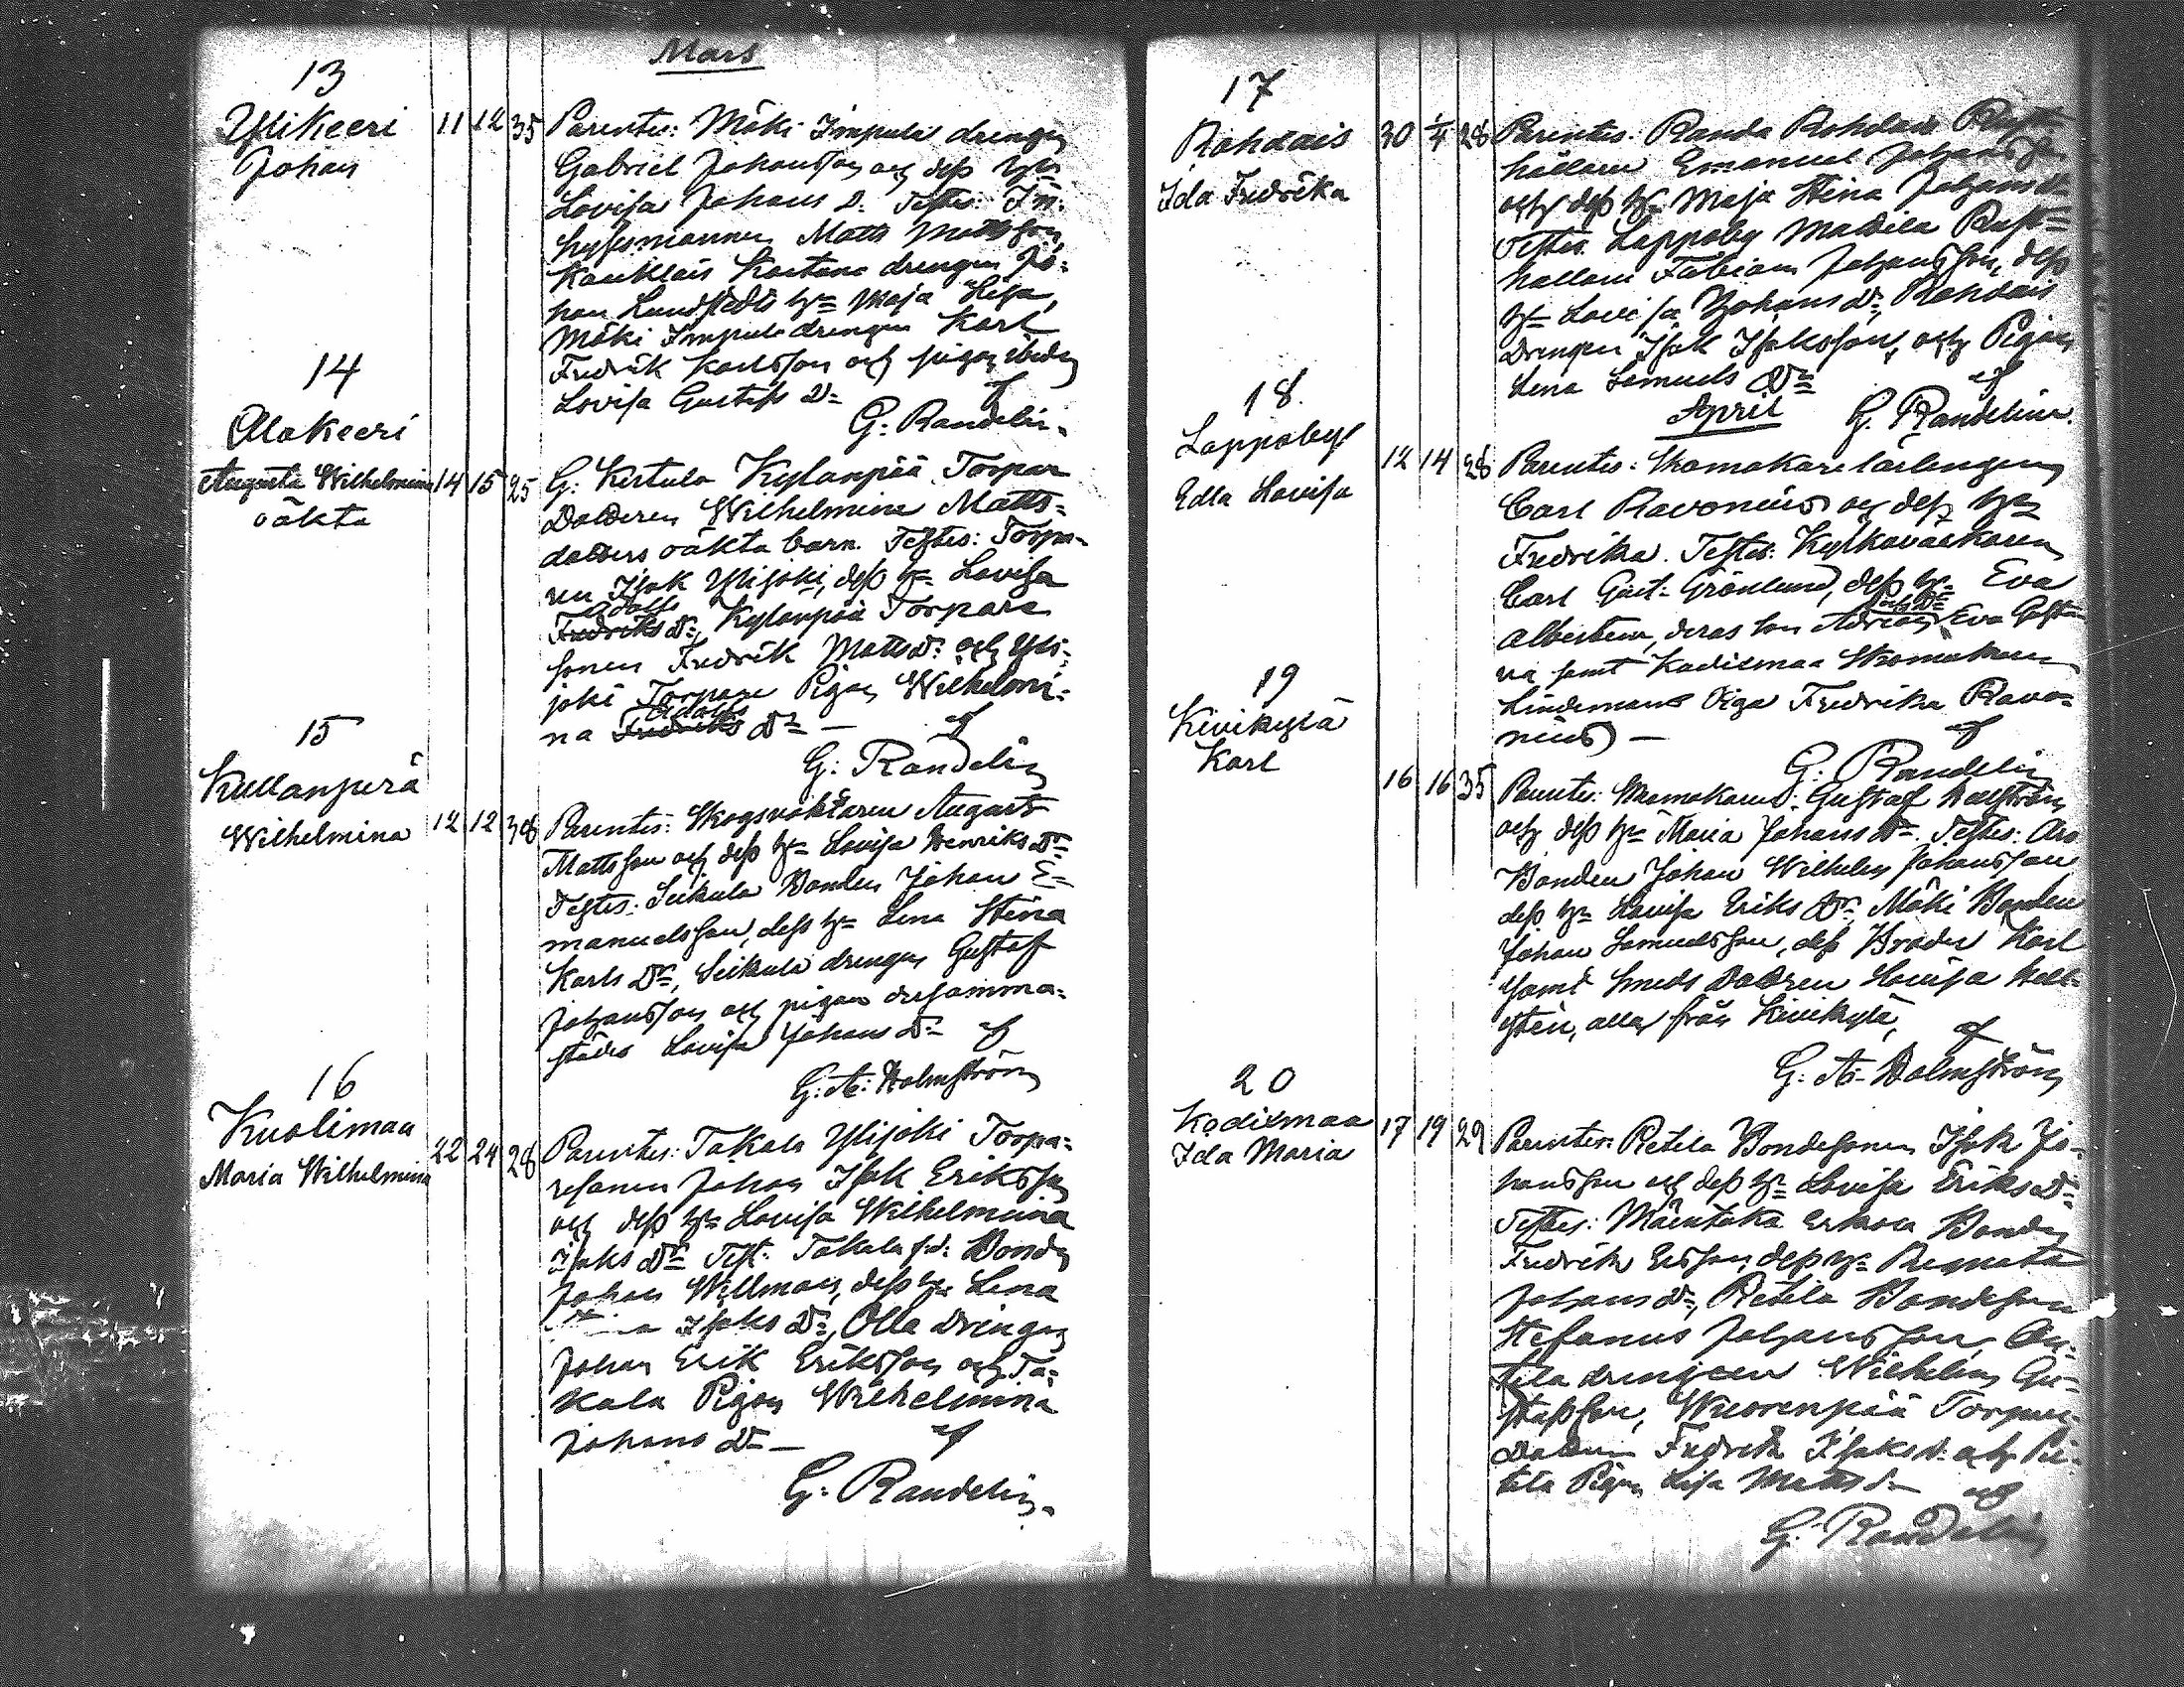 Mars
13
Ylikeeri 11 12 35 Parentes: Mäki Impula drengen
Johan Gabriel Johansson och dess H:u
Lovisa Johans D: Testes: In-
hysesmannen Matts Mattsson,
Kauklais Kartano drengen Jo-
han Lundstedts H:u Maja Lisa,
Mäki Impula drengen Karl
Fredrik Karlsson och pigan ibidem
Lovisa Gustafs D: af
G: Randelin.
14
Alakeeri
Augusta Wilhelmina 14 15 25 G: Kertula Kylänpää Torpar
oäkta Dotteren Wilhelmina Matts-
dotters oäkta barn. Testes: Torpa-
ren Isak Ylijoki, dess H:u Lovisa
Adolfs
Fredriks D:r, Kylänpää Torpare
sonen Fredrik Matts D: och Yli-
joki Torpare Pigan Wilhelmi-
Adolfs
na Fredriks D:r — af
G: Randelin
15
Kullanperä
Wilhelmina 12 12 38 Parentes: Skogsvaktaren August
Mattsson och dess H:u Lovisa Henriks D:r
Testes: Seikula Bonden Johan E-
manuelsson, dess H:u Lena Stina
Karls D:r, Seikula drengen Gustaf
Johansson och pigan dersamma-
städes Lovisa Johans D:r af
G: A: Holmström
16
Kuolimaa
Maria Wilhelmina 22 24 28 Parentes: Takala Ylijoki Torpa-
resonen Johan Isak Eriksson
och dess H:u Lovisa Wilhelmina
Isaks D:r Test: Takala f.d. Bonden
Johan Willman, dess H:u Lena
Isaks D:r, Olla Drengen
Johan Erik Eriksson och Ta-
kala Pigan Wilhelmina
Johans D:r — af
G: Randelin.
17
Rohdais 30 1/4 28 Parentes: Randa Rohdais Rust-
Ida Fredrika hållare Emanuel Johansson
och dess H:u Maja Stina Johans D:r
Testes: Lappoby Mattila Rust-
hållare Fabian Johansson, dess
H:u Lovisa Johans D:r, Rohdais
Drengen Isak Isaksson, och Pigan
Lena Samuels D:r af
April G. Randelin.
18.
Lappoby 12 14 28 Parentes: Skomakare lärlingen
Edla Lovisa Carl Ravonius och dess H:u
Fredrika. Testes: Kyrkovaktaren
Carl Gust: Grönlund, dess H:u Eva
Albertina, deras son Adrian, Eva Gusta-
va samt Kodismaa Skomakare
Lindemans Piga Fredrika Ravo-
nius — af
G: Randelin
19
Kivikylä
Karl 16 16 35 Parentes: Skomakaren Gustaf Hellström
och dess H:u Maria Johans D:r. Testes: Aro
Bonden Johan Wilhelm Johansson
dess H:u Lovisa Eriks D:r, Mäki Bonden
Johan Samuelsson, dess Broder Karl
samt Smeds Dottren Lovisa Hell-
stén, alla från Kivikylä, af
G: A: Holmström
20
Kodismaa 17 19 29 Parentes: Retila Bondesonen Isak Jo-
Ida Maria hansson och dess H:u Lovisa Eriks D:r
Testes: Mäentaka Erkola Bonden
Fredrik Ersson, dess H:u Renata
Johans D:r, Retila Bondeson
Stefanus Johansson, An-
tila drengen Wilhelm Gu-
stafsson, Wuorenpää Torpare
Dottren Fredrika Isaks D: och Re-
tila Pigan Lisa Matts D:r af
G: Randelin